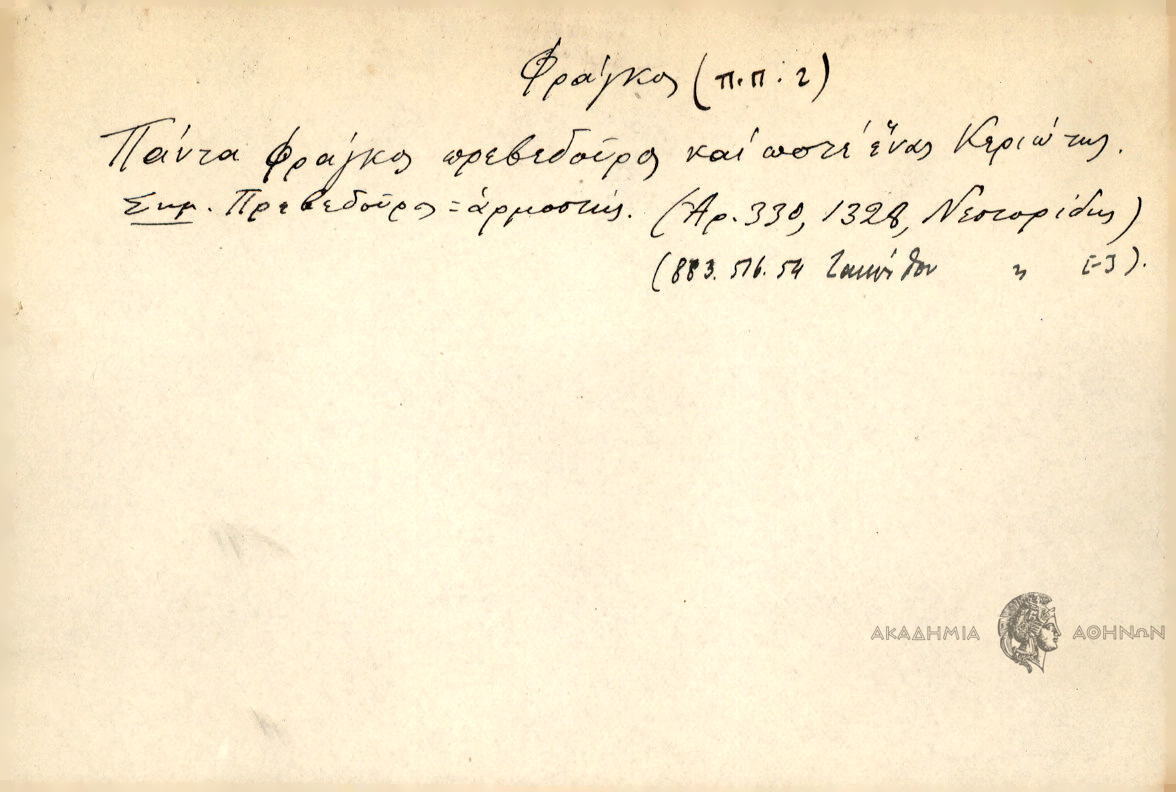 Φράγκος (π.π. 2)
Πάντα Φράγκος πρεβεδοῦρος καί ποτέ ἕνας Κεριώτης.
Σημ. Πρεβεδοῦρος = ἁρμοστής. (Ἀρ. 330, 1328, Νεστορίδης)
(883. 516. 54 Ζακύνθου " [-]).
ΑΚΑΔΗΜΙΑ ΑΘΗΝΩΝ